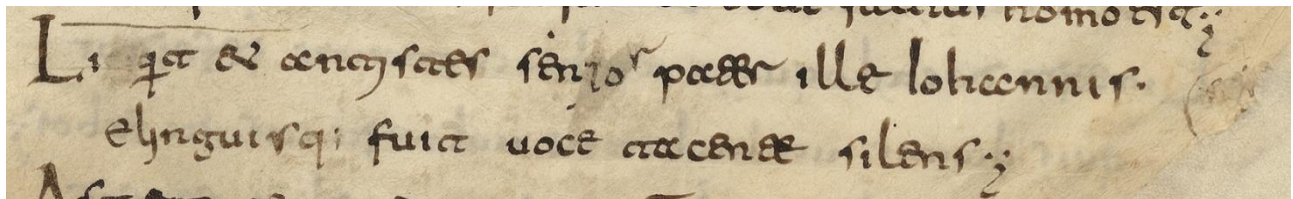 Li qͥt & antistes senior pater ille Iohannis.
elinguisq; fuit uoce tacente silens·;